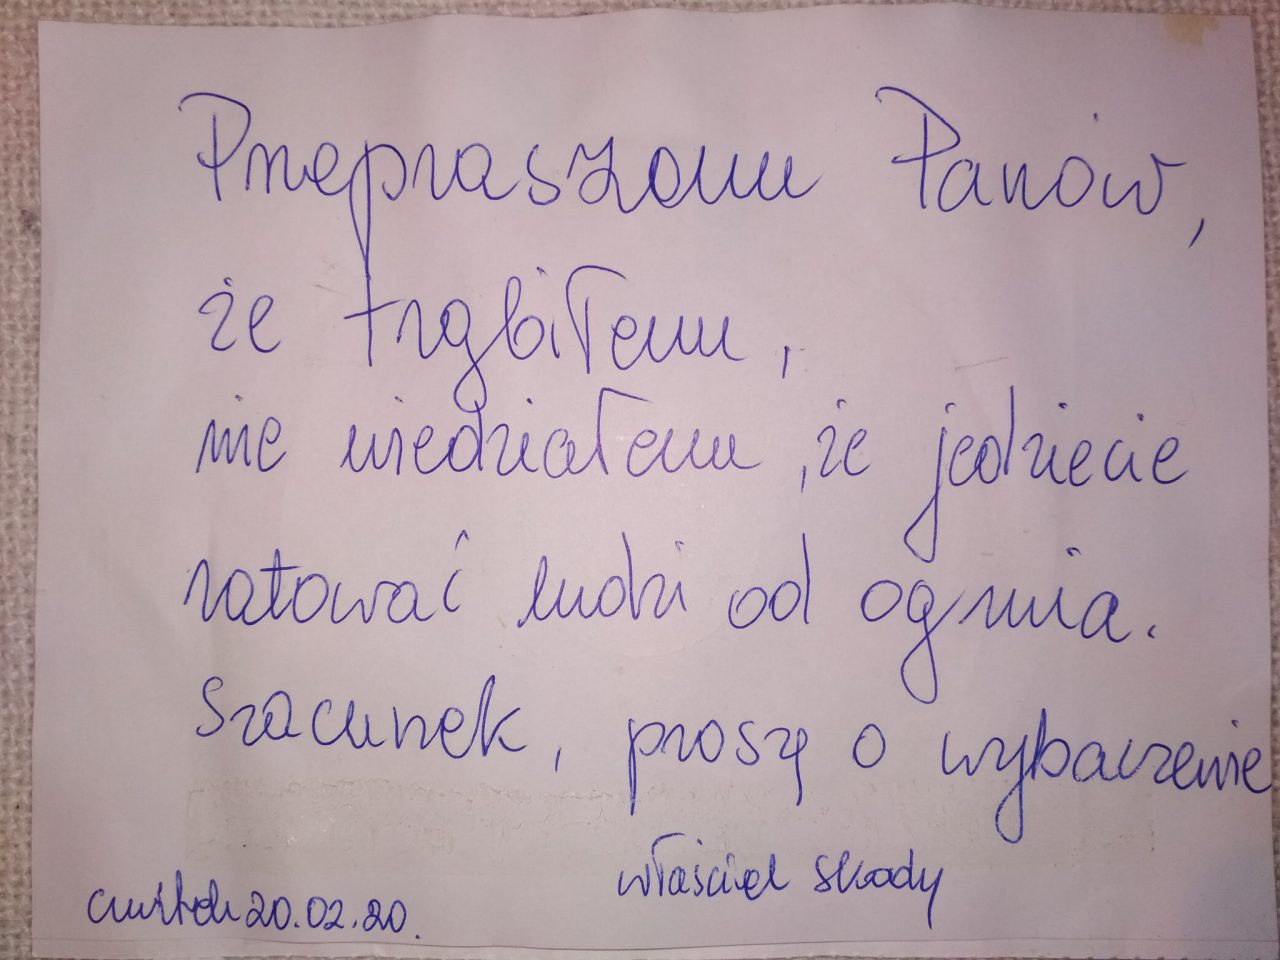 Przepraszam Panów,
że trąbiłem,
nie wiedziałem, że jedziecie
ratować ludzi od ognia.
Szacunek, proszę o wybaczenie
właściel skody
20.02.20.